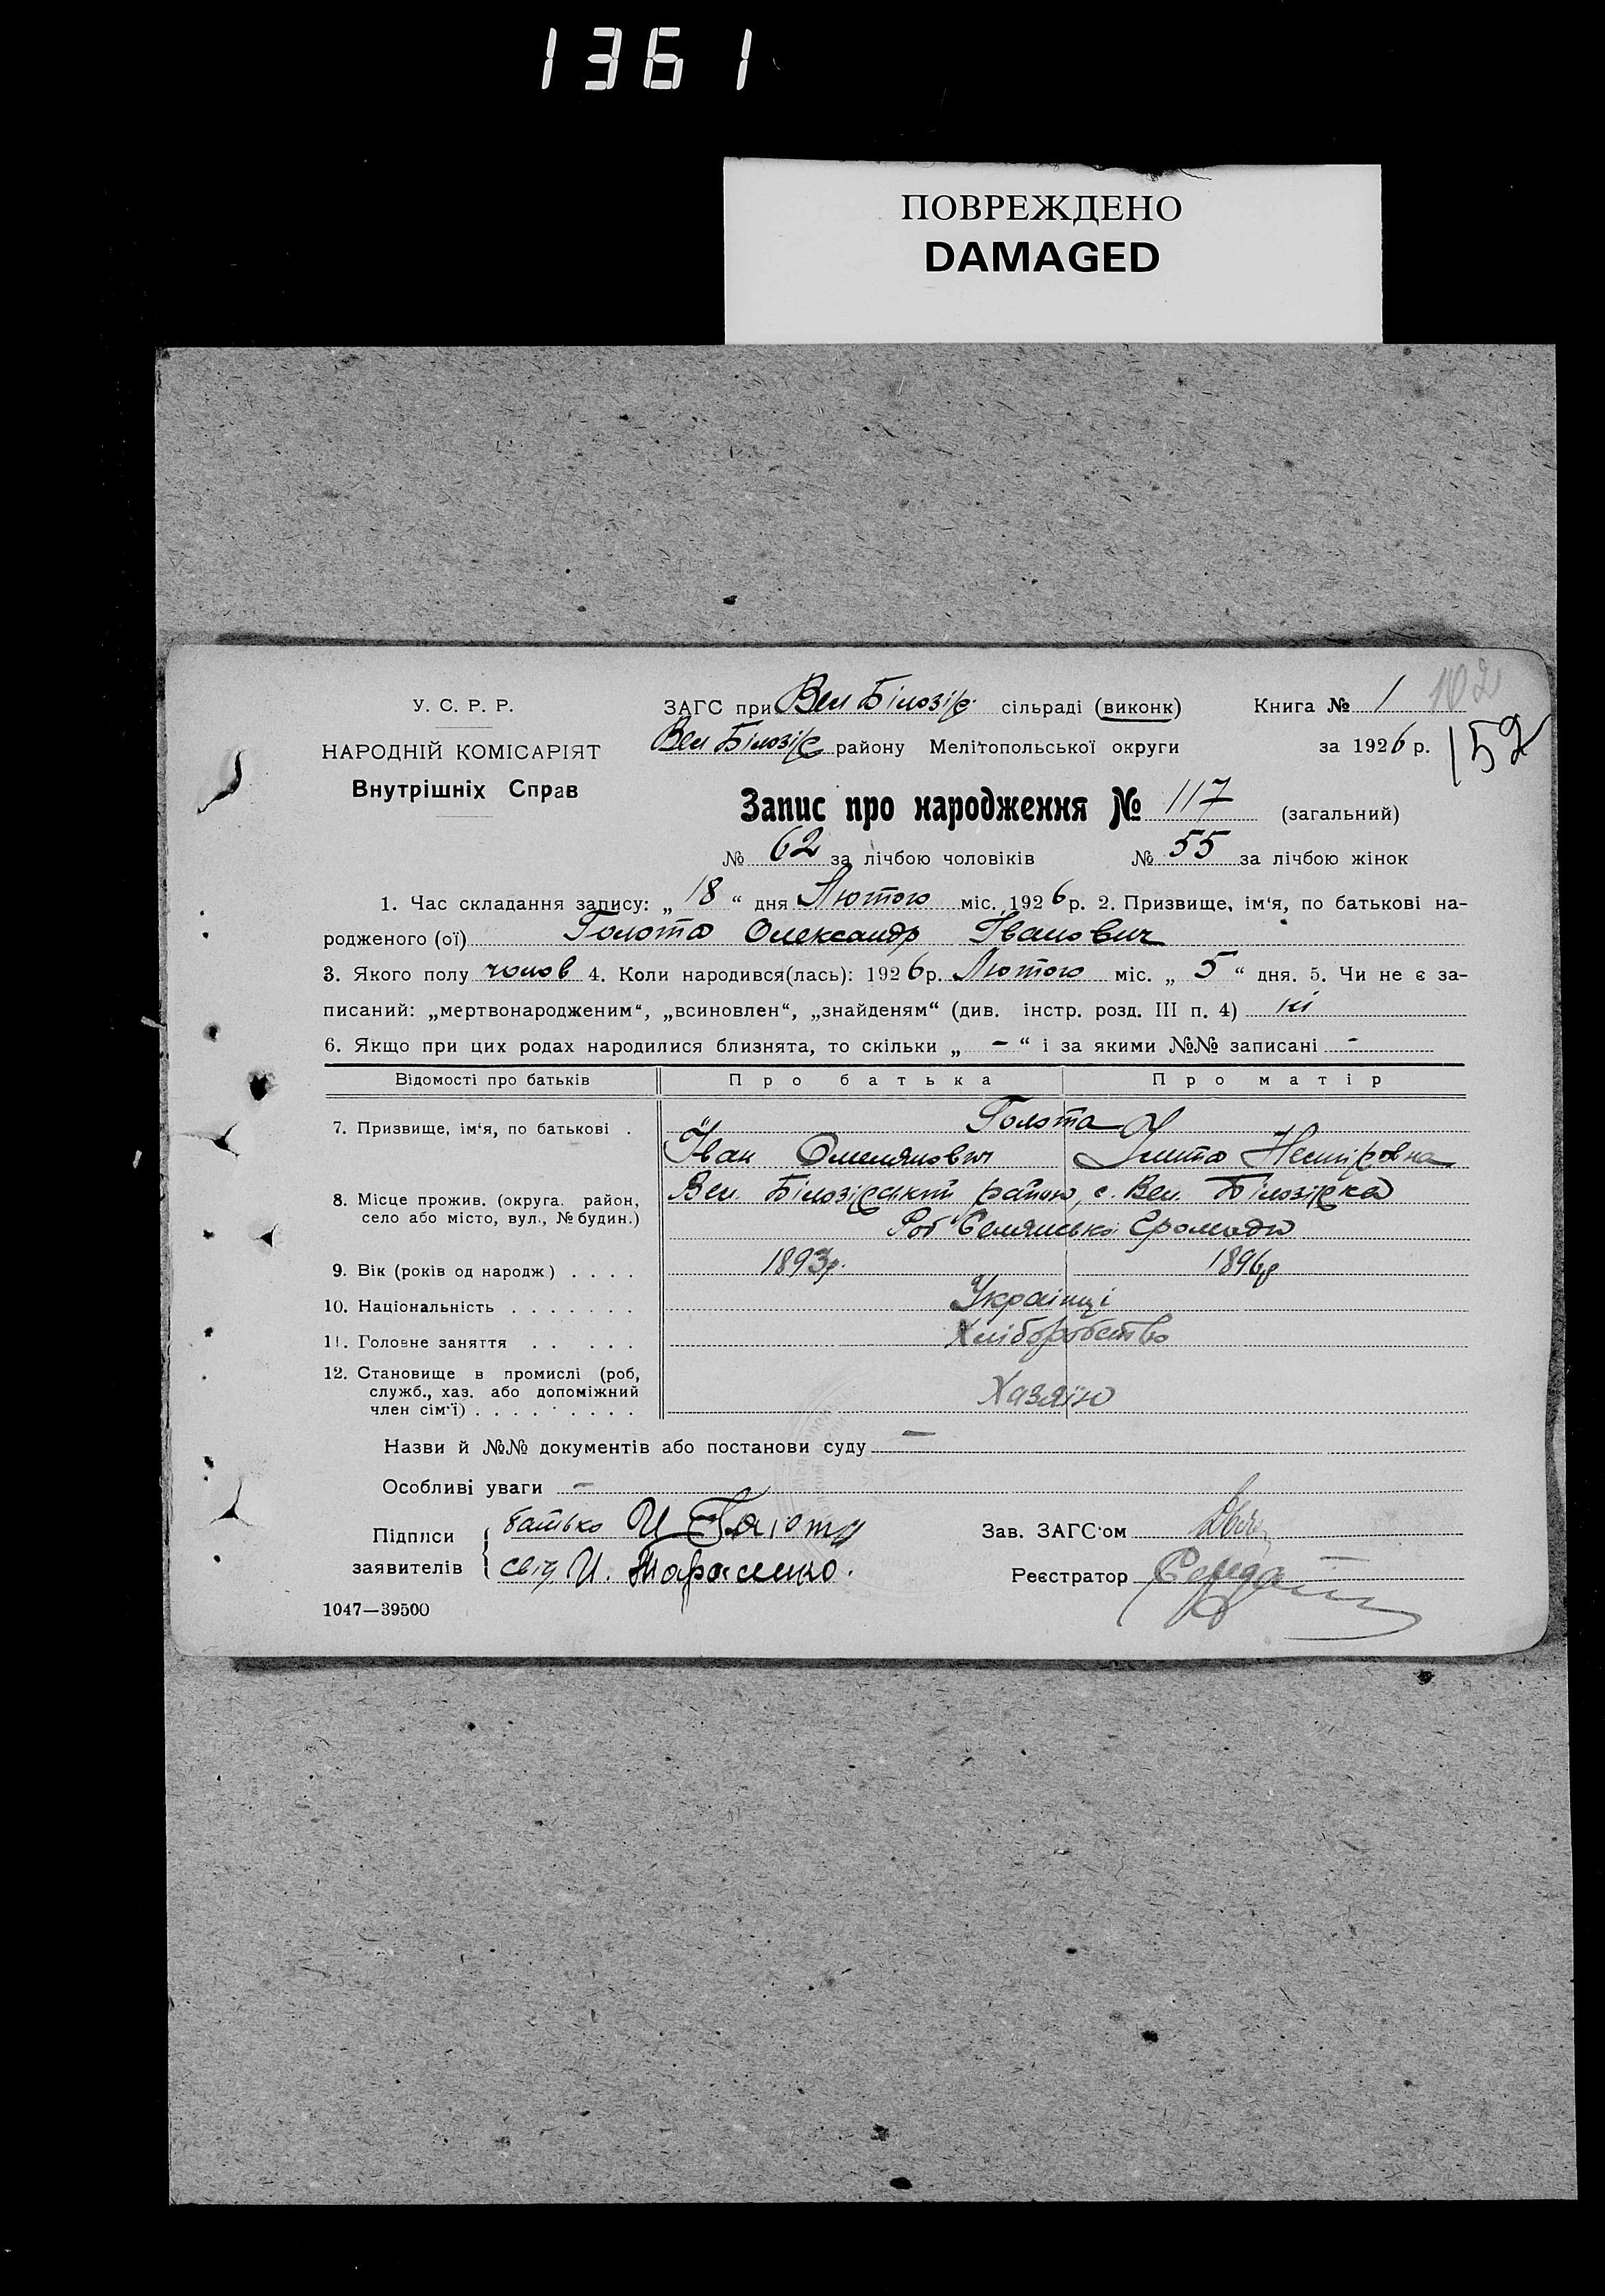 1361
ПОВРЕЖДЕНО
DAMAGED
У. С. Р. Р.
НАРОДНІЙ КОМІСАРІЯТ
Внутрішніх Справ
ЗАГС при Вел Білозір. сільраді (виконк)
Вел Білозір району Мелітопольської округи
Книга № 1
102
за 1926 р.
152
Запис про народження № 117 (загальний)
№ 62 за лічбою чоловіків № 55 за лічбою жінок
1. Час складання запису: „ 18 “ дня Лютого міс. 1926 р. 2. Призвище, ім‘я, по батькові на-
родженого (ої) Голота Олександр Іванович
3. Якого полу чолов 4. Коли народився(лась): 1926 р. Лютого міс. „ 5 “ дня. 5. Чи не є за-
писаний: „мертвонародженим“, „всиновлен“, „знайденям“ (див. інстр. розд. III п. 4) ні
6. Якщо при цих родах народилися близнята, то скільки „ - “ і за якими №№ записані -
Відомості про батьків Про батька Про матір
7. Призвище, ім‘я, по батькові . Голота
Іван Омелянович
8. Місце прожив. (округа. район, село або місто, вул., № будин.) Вел. Білозірський район, с. Вел. Білозірка
Громади
9. Вік (років од народж) . . . . 1893р. 1896р
10. Національність . . . . . . . Українці
11. Головне заняття . . . . . Хліборобство
12. Становище в промислі (роб,
служб., хаз. або допоміжний
член сім‘ї) . . . . . . . . . Хазяїн
Назви й №№ документів або постанови суду —
Особливі уваги —
Підписи
заявителів
батько И Голота
свід. И. Тарасенко.
Зав. ЗАГС‘ом
Реєстратор Середа
1047—39500